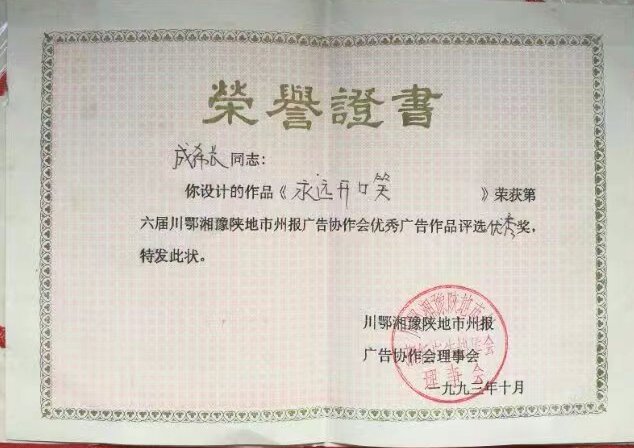 榮譽證書
成希长 同志：
你设计的作品《永远开口笑》荣获第
六届川鄂湘豫陕地市州报广告协作会优秀广告作品评选优秀奖，
特发此状。
川鄂湘豫陕地市州报
广告协作会理事会
一九九三年十月